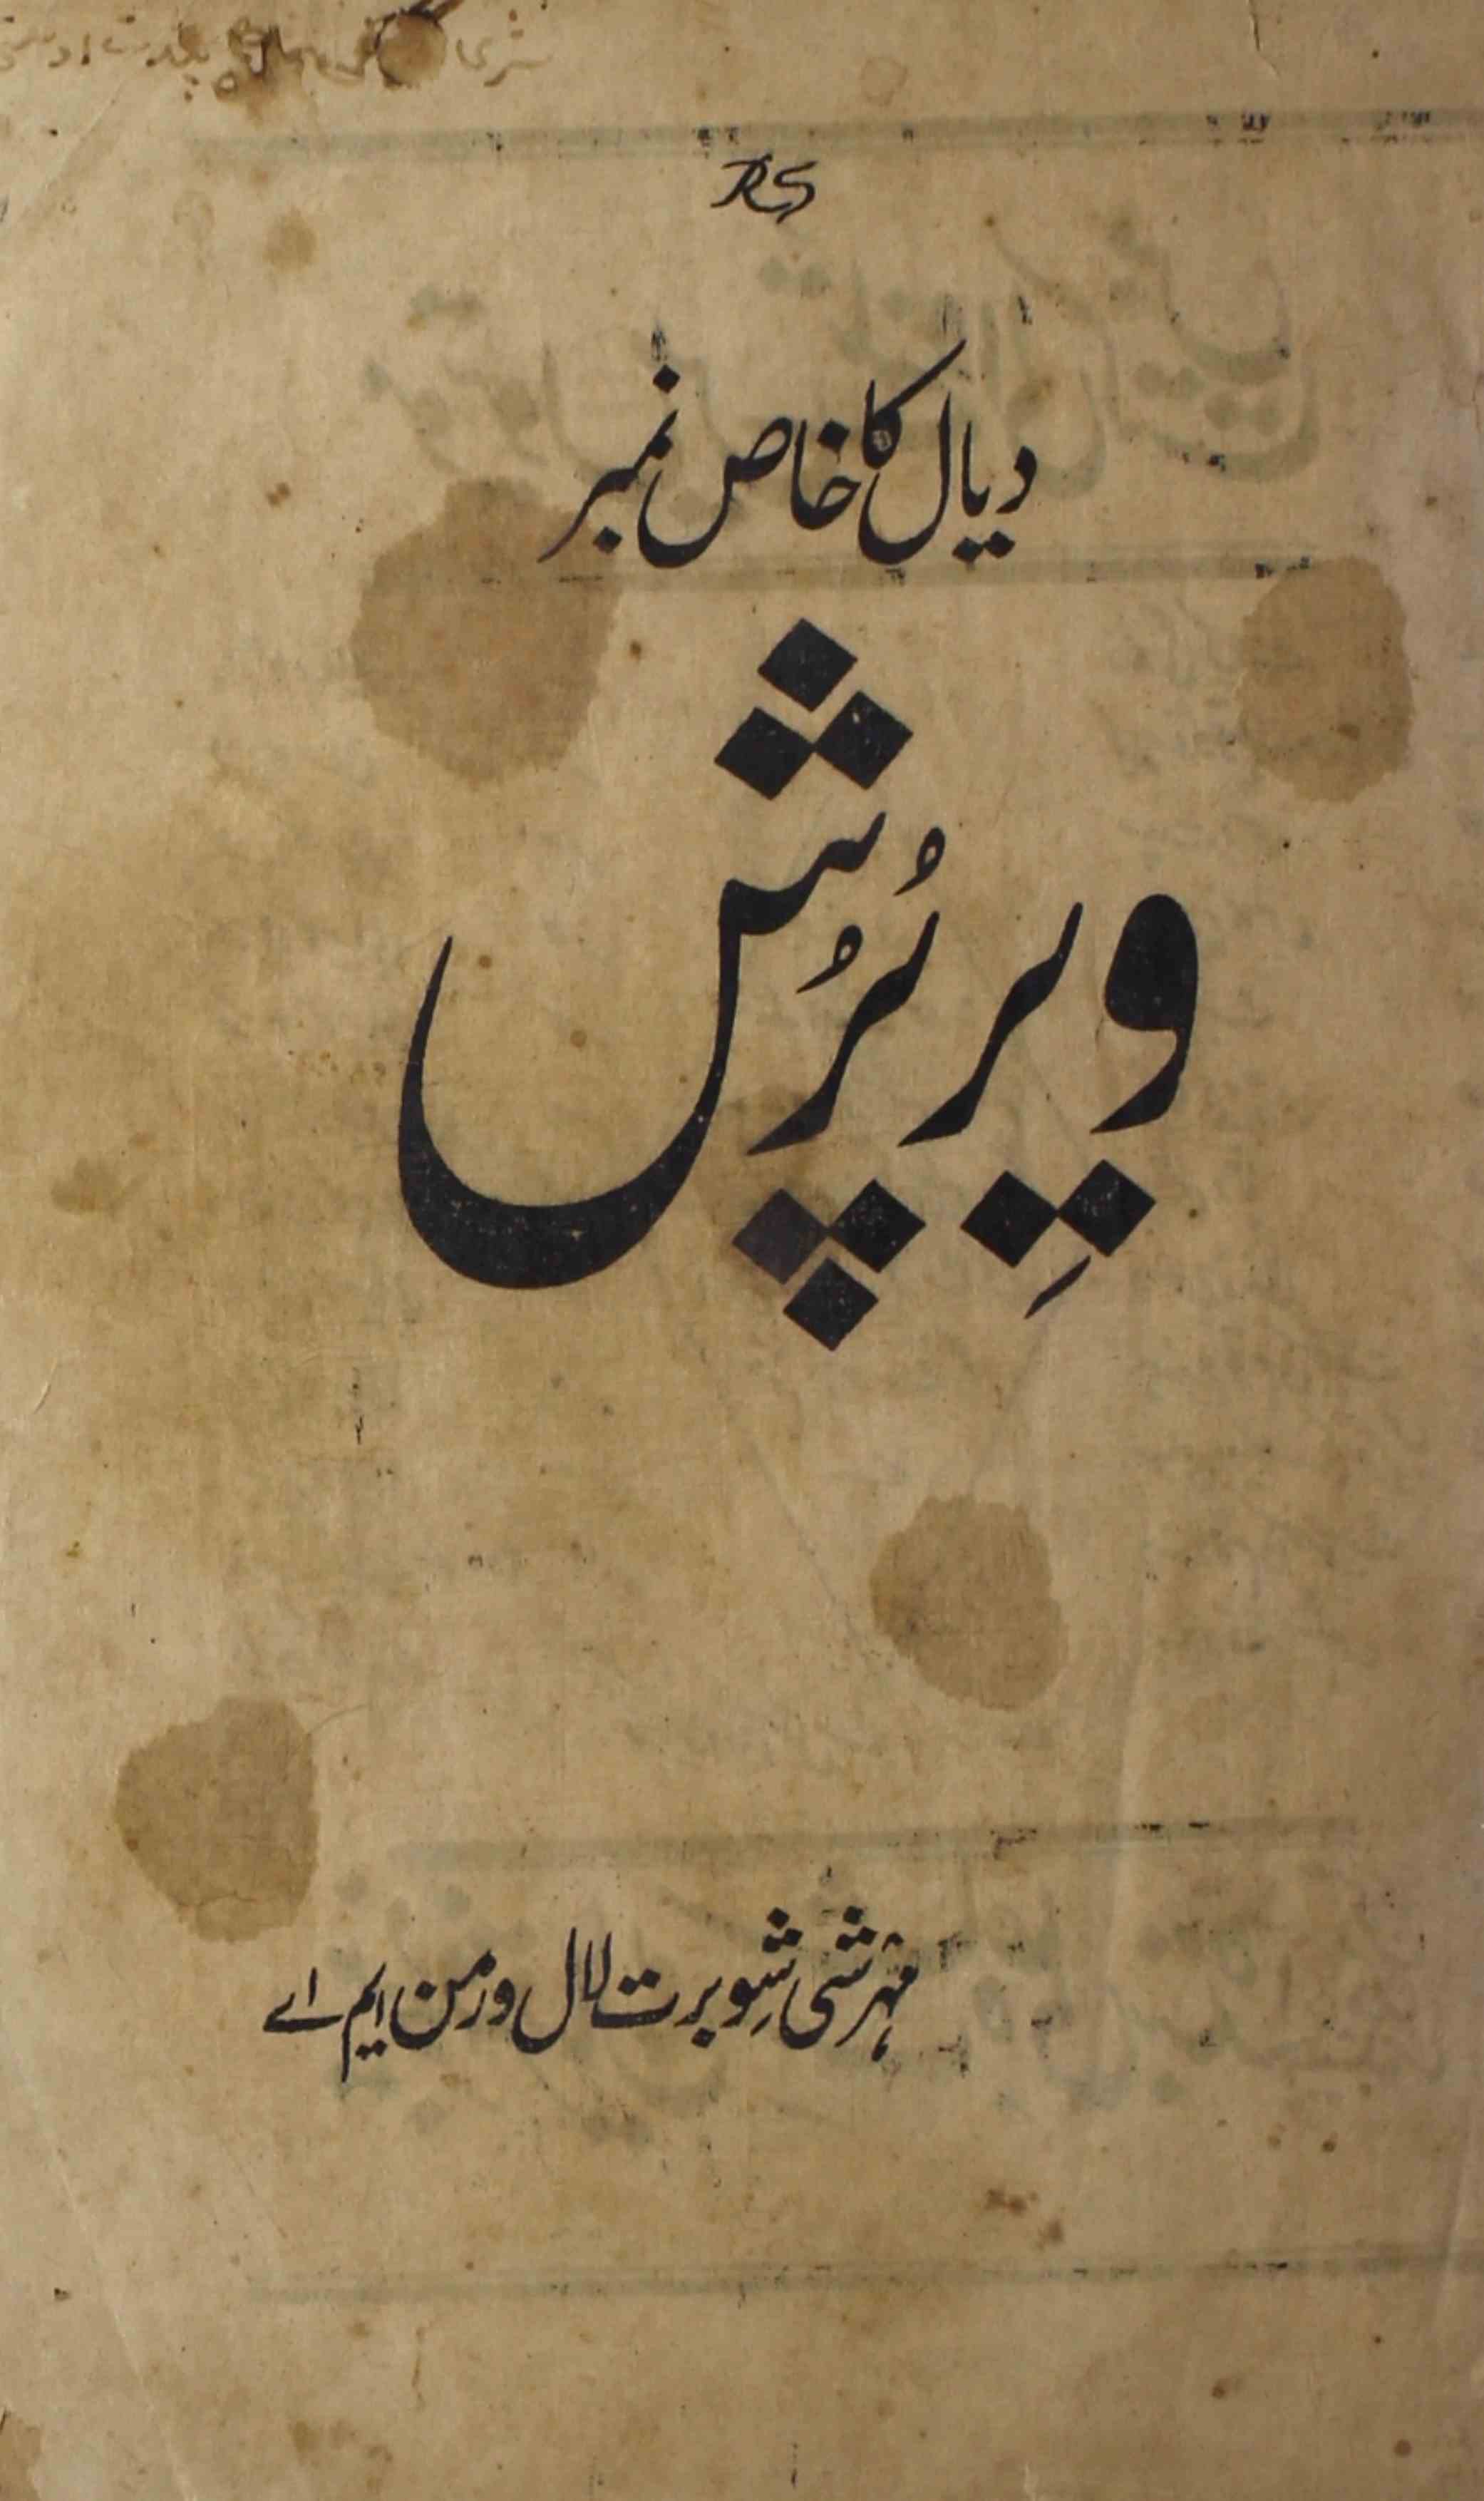 RS
دیال کا خاص نمبر
وِیر پُرُش
مہرشی شِوبرت لال ورمن ایم اے